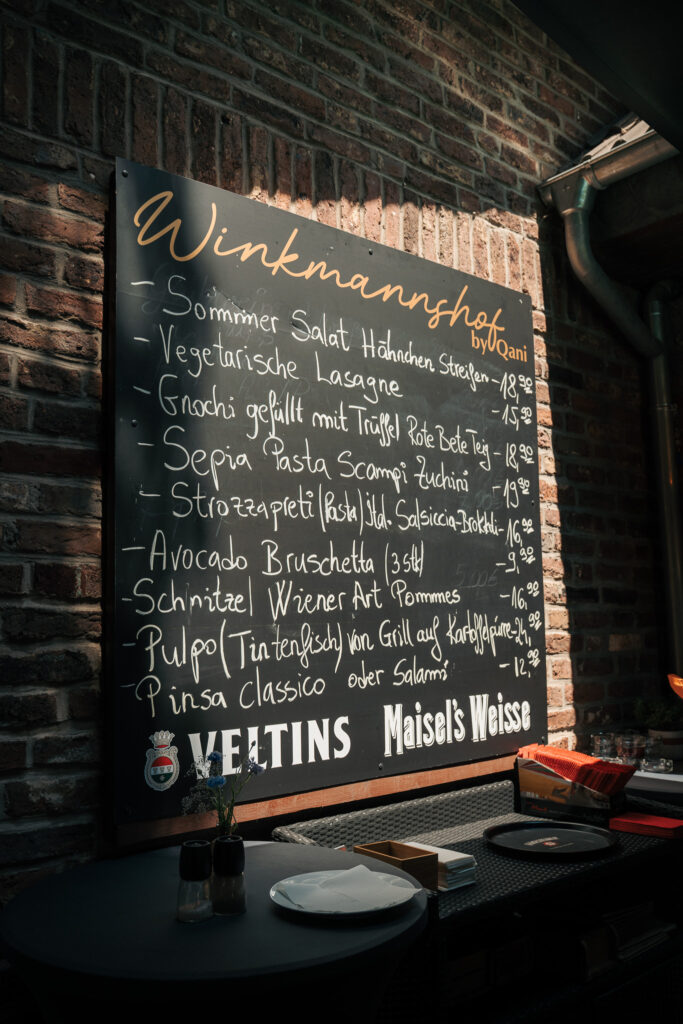 Winkmannshof
by Qani
- Sommer Salat Hähnchen Streifen - 18,90
- Vegetarische Lasagne - 15,90
- Gnochi gefüllt mit Trüffel Rote Bete Teig - 18,90
- Sepia Pasta Scampi Zuchini - 19,90
- Strozzapreti (Pasta) Ital. Salsiccia-Brokkoli - 16,90
- Avocado Bruschetta (3 stk) - 9,90
- Schnitzel Wiener Art Pommes - 16,90
- Pulpo (Tintenfisch) von Grill auf Kartoffelpüree - 24,90
- Pinsa Classico oder Salami - 12,90
VELTINS Maisel's Weisse